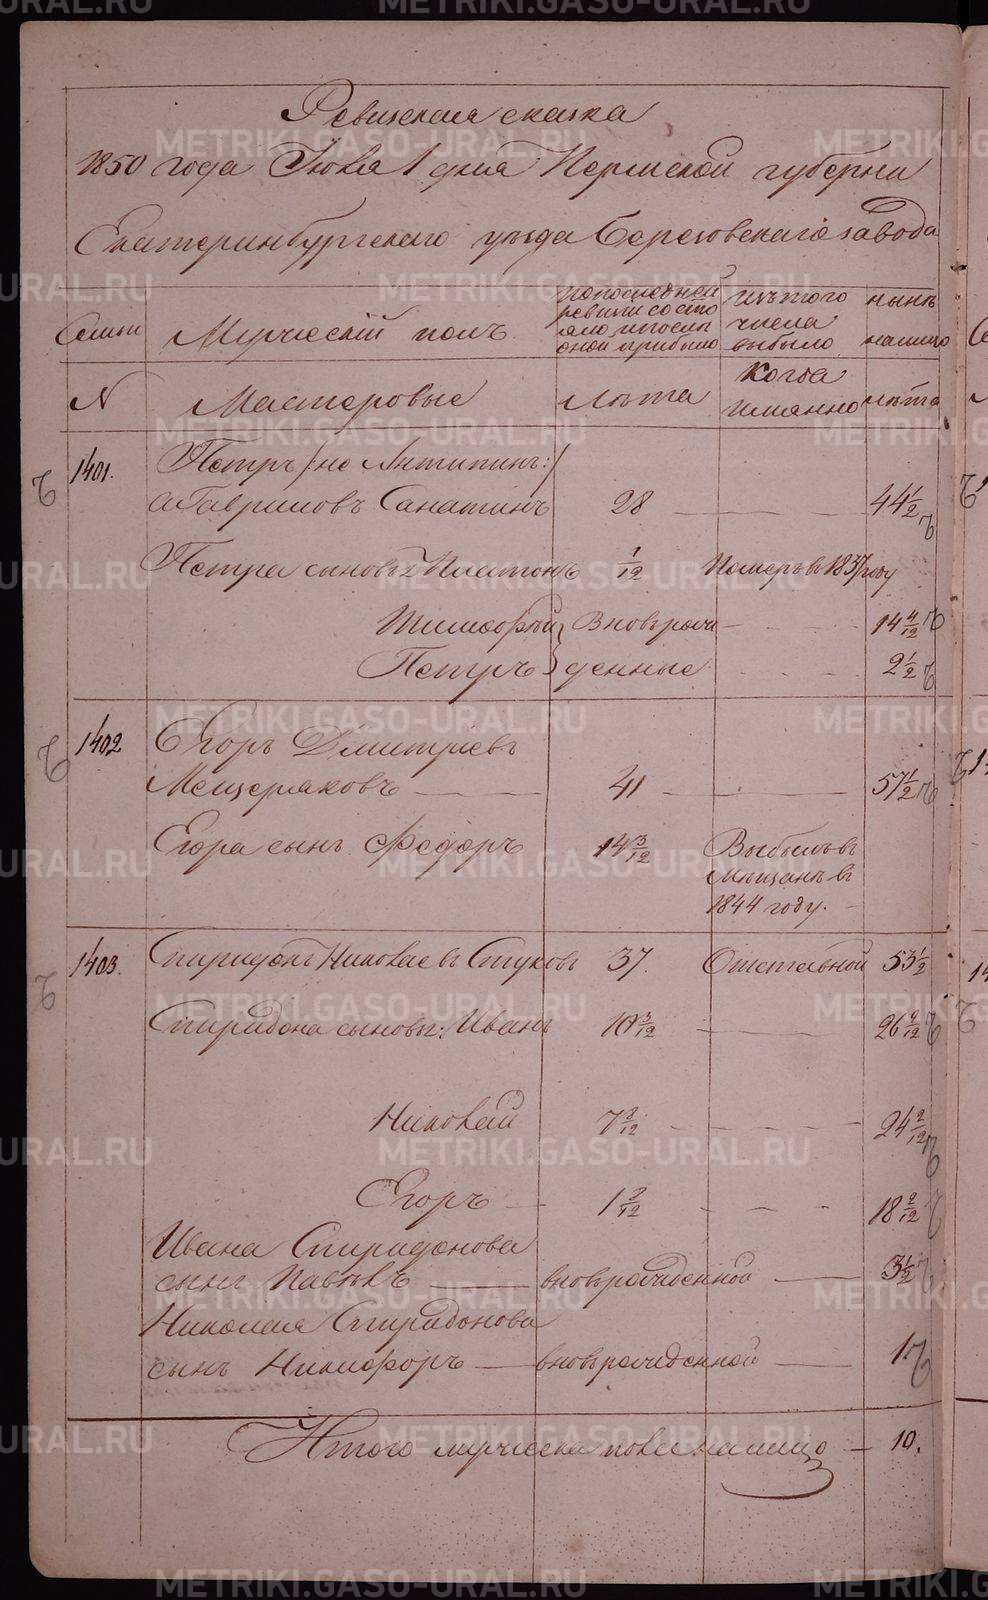 Ревизская сказка
1850 года Июля 1 дня Пермской губернии
Екатеринбургскаго уезда Березовскаго завода
Семьи
Мужескій полъ
по последней ревизіи состояло и после оной прибыло
изъ того числа выбыло
ныне на лицо
N
Мастеровые
Лета
Когда именно
лета
1401.
Петръ /:не Антипинъ:/
а Гавриловъ Санатинъ 28 44 1/2
Петра сыновья Платонъ 1/12 Померъ в 1837 году
Тимофей 14 4/12
Петръ 2 1/2
Вновьрож
денные
1402
Егоръ Дмитріевъ
Мещеряковъ 41 57 1/2
Егора сынъ Федоръ 14 3/12
Выбылъ въ
Мещане в
1844 году.
1403.
Спиридонъ Николаевъ Стуковъ 37. Отставной 53 1/2
Спиридона сыновья: Иванъ 10 3/12 26 9/12
Николай 7 8/12 24 2/12
Егоръ 1 9/12 18 2/12
Ивана Спиридонова
сынъ Павелъ вновьрожденной 3 1/2
Николая Спиридонова
сынъ Никифоръ вновьрожденной 1.
Итого мужеска пола на лицо 10.
METRIKI.GASO-URAL.RU